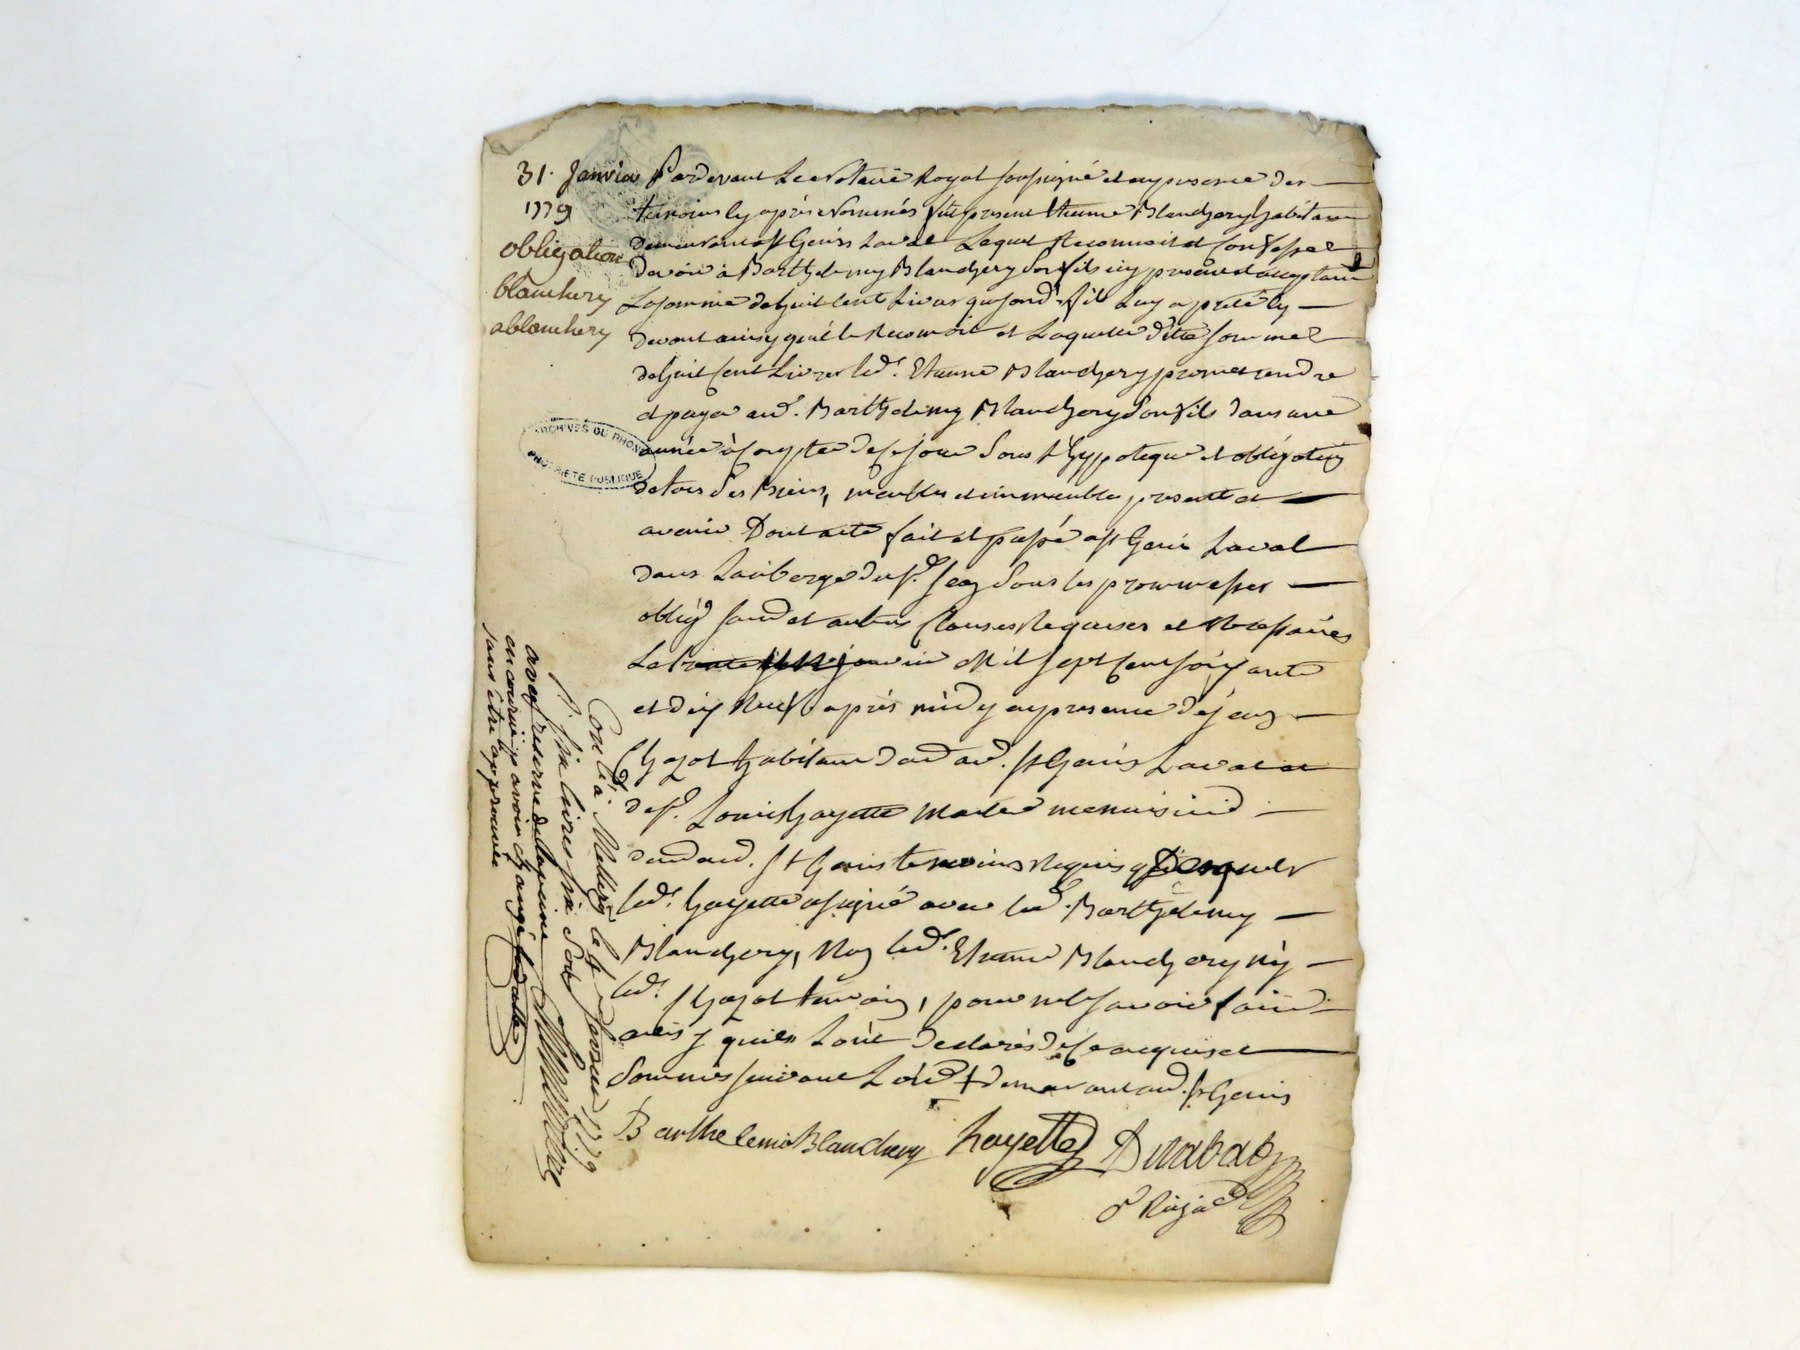 31. Janvier
1779
obligation
blanchery
a blanchery
ARCHIVES DU RHONE
PROPRIETE PUBLIQUE
Pardevant Le Notaire Royal soussigné et en presence des
temoins cy après Nommés fut present Etienne Blanchery habitant
demeurant a St Genis Laval Lequel Reconnoit et confesse
devoir à Barthelemy Blanchery son fils icy present et acceptant
La somme de huit cent Livres que son d. fils Luy a preté cy
devant ainsy qu'il le Reconnoit et Laquelle ditte somme
de huit cent Livres led. Etienne Blanchery promet rendre
et payer aud. Barthelemy Blanchery son fils dans une
année à compter de ce jour sous l'hyppoteque et obligation
de tous ses Biens, meubles et immeubles presents et
avenir Dont acte fait et passé a St Genis Laval
dans Lauberge du s. Jean sous les prommesses
oblig. soum. et autres Clauses Requises et Necessaires
Le trente janvier Mil sept cent soixante
et dix Neuf après midy en presence de jean
Chazot habitant dud. St Genis Laval et
de s. Louis hayette Maitre menuisier
dud. St Genis temoins Requis desquels
led. hayette a signé avec led. Barthelemy
Blanchery, Non led. Etienne Blanchery Ny
led. Chazot temoin, pour ne le savoir faire
ainsy quils L'ont declarés de ce enquis et
sommés suivant L'ord. + demeurant aud. St Genis
Barthelemi Blanchery hayette Durabat
N. Royal
Con.lé à Millery le Janvier 1779
R. six livres six sols
avec reserve de la peine
encourue p. avoir changé la datte
sans être approuvée